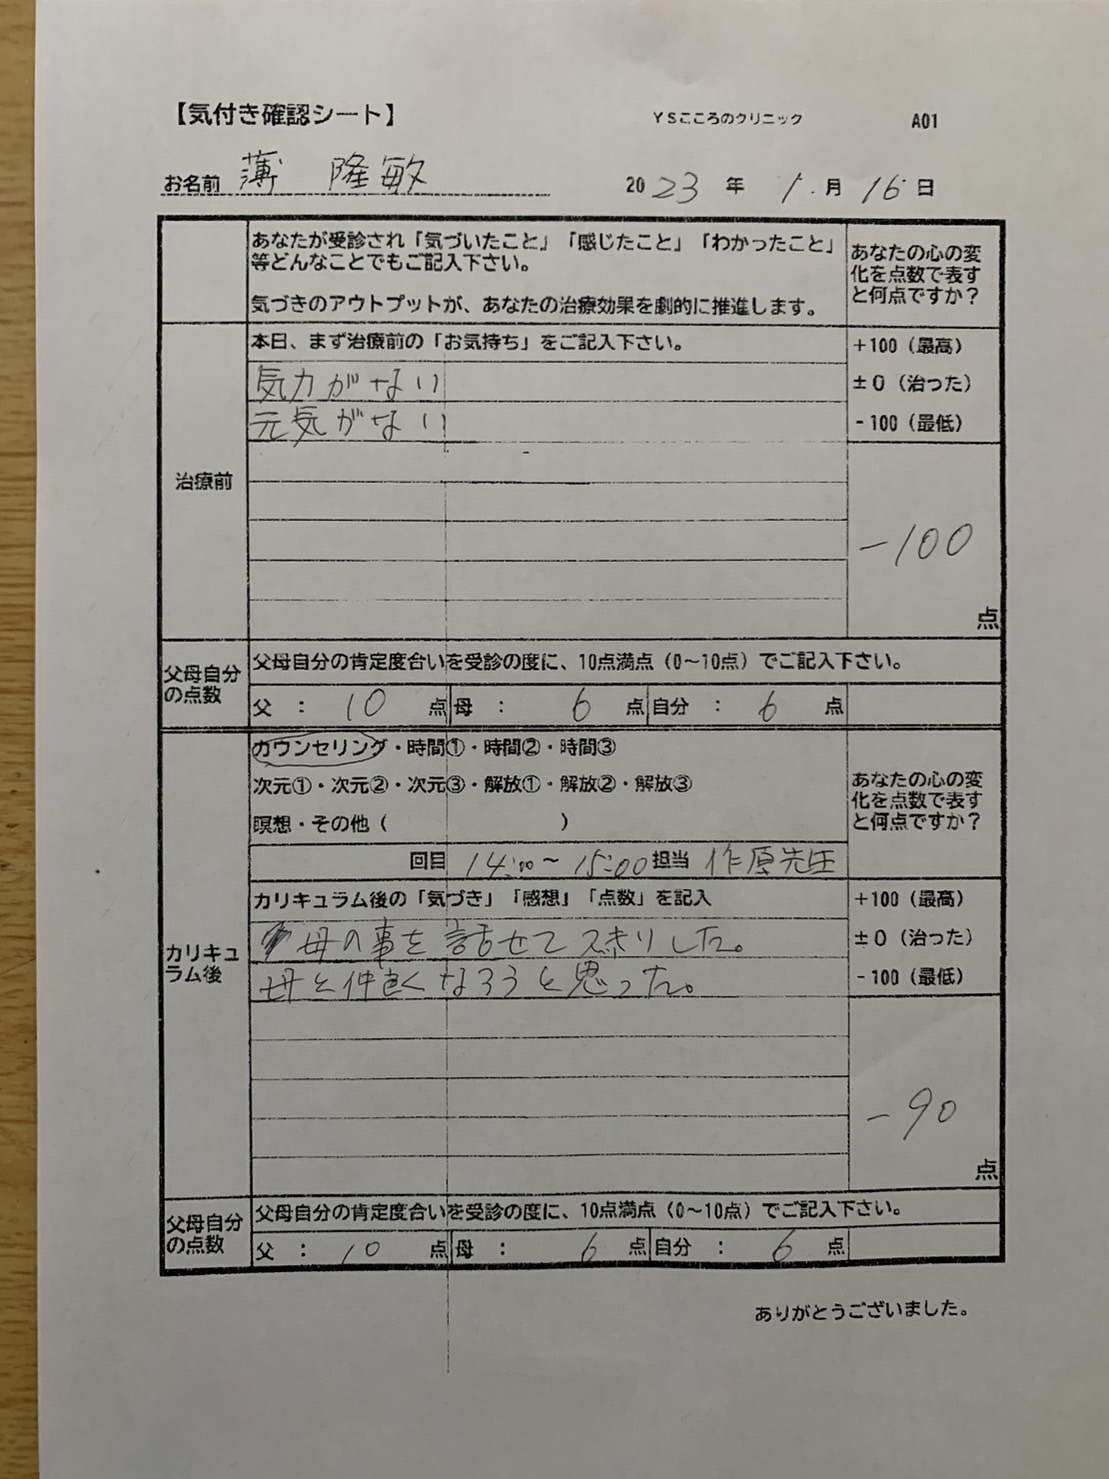 【気付き確認シート】 YSこころのクリニック A01
お名前 薄 隆敏 2023年 1.月 16日
あなたが受診され「気づいたこと」「感じたこと」「わかったこと」
等どんなことでもご記入下さい。
気づきのアウトプットが、あなたの治療効果を劇的に推進します。
あなたの心の変
化を点数で表す
と何点ですか？
治療前
本日、まず治療前の「お気持ち」をご記入下さい。
気力がない
元気がない
+100（最高）
±0（治った）
-100（最低）
-100
点
父母自分
の点数
父母自分の肯定度合いを受診の度に、10点満点（0～10点）でご記入下さい。
父 ： 10 点 母 ： 6 点 自分 ： 6 点
カリキュ
ラム後
カウンセリング・時間①・時間②・時間③
次元①・次元②・次元③・解放①・解放②・解放③
瞑想・その他（ ）
回目 14:00～15:00 担当 作原先生
あなたの心の変
化を点数で表す
と何点ですか？
カリキュラム後の「気づき」「感想」「点数」を記入
母の事を話せてスッキリした。
母と仲良くなろうと思った。
+100（最高）
±0（治った）
-100（最低）
-90
点
父母自分
の点数
父母自分の肯定度合いを受診の度に、10点満点（0～10点）でご記入下さい。
父 ： 10 点 母 ： 6 点 自分 ： 6 点
ありがとうございました。